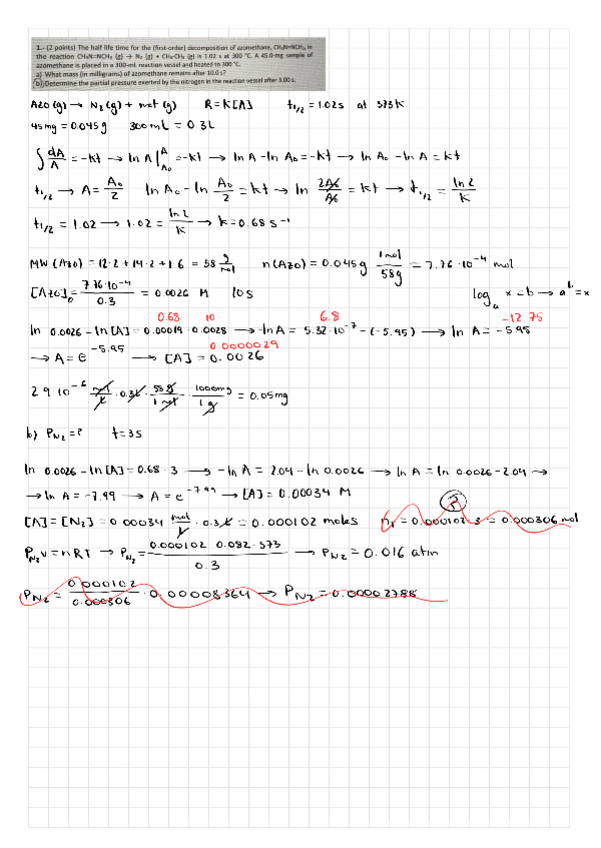 1.- (2 points) The half life time for the (first-order) decomposition of azomethane, CH₃N=NCH₃, in
the reaction CH₃N=NCH₃ (g) → N₂ (g) + CH₃-CH₃ (g) is 1.02 s at 300 °C. A 45.0-mg sample of
azomethane is placed in a 300-mL reaction vessel and heated to 300 °C.
a) What mass (in milligrams) of azomethane remains after 10.0 s?
b) Determine the partial pressure exerted by the nitrogen in the reaction vessel after 3.00 s.
AZO (g) → N₂(g) + met (g) R = K[A] t₁/₂ = 1.02s at 573K
45 mg = 0.045 g 300 mL = 0.3L
∫ dA/A = -kt → ln A |ᴬ_A₀ = -kt → ln A - ln A₀ = -kt → ln A₀ - ln A = kt
t₁/₂ → A = A₀/2 ln A₀ - ln A₀/2 = kt → ln 2A₀/A₀ = kt → t₁/₂ = ln 2/K
t₁/₂ = 1.02 → 1.02 = ln 2/K → k = 0.68 s⁻¹
MW (Azo) = 12·2 + 14·2 + 1·6 = 58 g/mol n(Azo) = 0.045g 1mol/58g = 7.76·10⁻⁴ mol
[Azo]₀ = 7.76·10⁻⁴/0.3 = 0.0026 M 10s logₐ x = b → aᵇ = x
0.68 10 6.8 -12.75
ln 0.0026 - ln [A] = 0.00019 · 0.0028 → -ln A = 5.32·10⁻⁷ - (-5.95) → ln A = -5.95
0.0000029
→ A = e^-5.95 → [A] = 0.0026
2.9·10⁻⁶ mol/L · 0.3L · 58g/1mol · 1000mg/1g = 0.05mg
b) P_N₂ = ? t = 3s
ln 0.0026 - ln [A] = 0.68 · 3 → -ln A = 2.04 - ln 0.0026 → ln A = ln 0.0026 - 2.04 →
→ ln A = -7.99 → A = e^-7.99 → [A] = 0.00034 M
[A] = [N₂] = 0.00034 mol/L · 0.3L = 0.000102 moles n_T = 0.000102·3 = 0.000306 mol
P_N₂ V = nRT → P_N₂ = 0.000102 · 0.082 · 573/0.3 → P_N₂ = 0.016 atm
P_N₂ = 0.000102/0.000306 · 0.00008364 → P_N₂ = 0.00002788